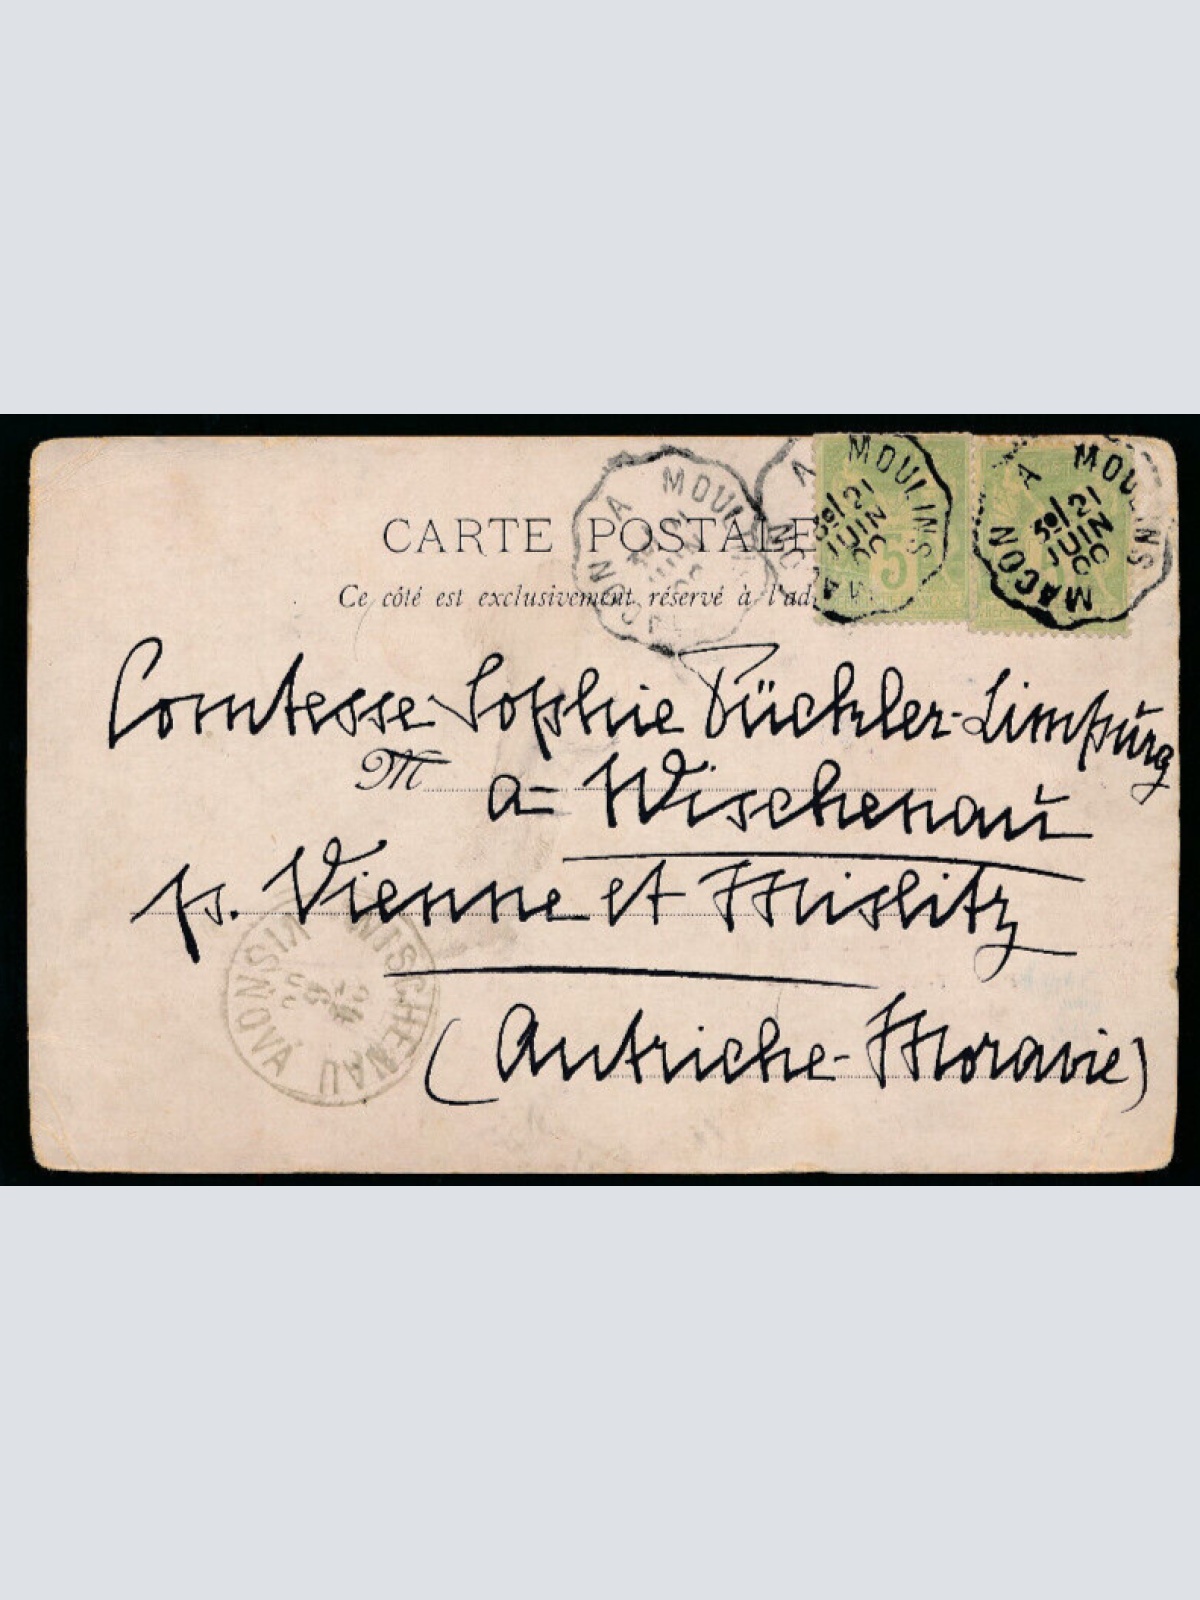 CARTE POSTALE
Ce côté est exclusivement réservé à l'ad
MACON A MOULINS
21
JUIN
00
A MOULINS
3º/21
JUIN
00
MACON A MOULINS
3º/21
JUIN
00
Comtesse Sophie Pückler-Limpurg
M
a= Wischenau
p. Vienne et Mislitz
(Autriche-Moravie)
WISCHENAU
VIŠNOVÁ